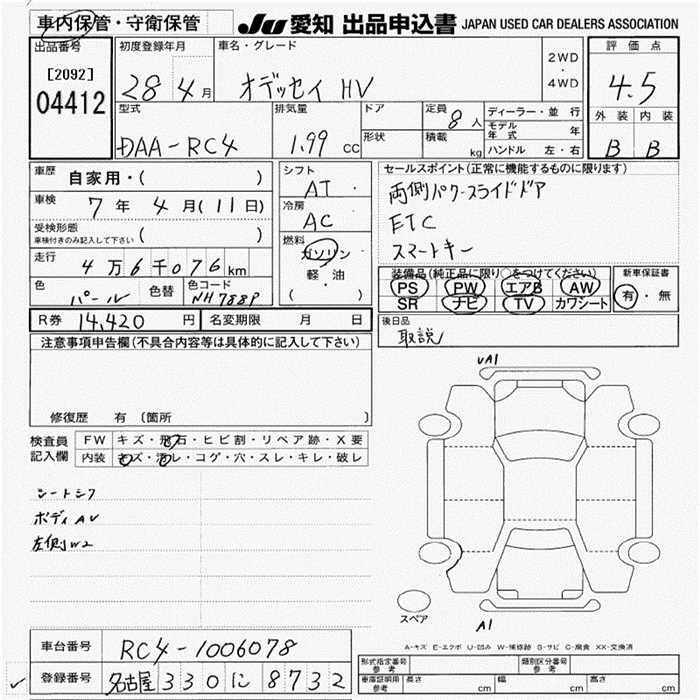 車内保管・守衛保管
JU 愛知 出品申込書 JAPAN USED CAR DEALERS ASSOCIATION
出品番号
[2092]
04412
初度登録年月
28 4 月
車名・グレード
オデッセイ HV
2WD
・
4WD
評価点
4.5
外装 内装
B B
型式
DAA-RC4
排気量
1.99 CC
ドア
形状
定員 8 人
積載 kg
ディーラー・並行
モデル年式 年
ハンドル 左・右
車歴 自家用・( )
車検 7 年 4 月(11日)
受検形態
車検付きのみ記入して下さい ( )
走行 4万6千076km
色 パール 色替 色コード NH788P
シフト
AT
冷房
AC
燃料
ガソリン
軽・油
( ・ )
セールスポイント(正常に機能するものに限ります)
両側パワースライドドア
ETC
スマートキー
装備品(純正品に限り○をつけてください)
PS PW エアB AW
SR ナビ TV カワシート
新車保証書
有・無
R券 14,420 円 名変期限 月 日
後日品
取説
注意事項申告欄(不具合内容等は具体的に記入して下さい)
修復歴 有 (箇所 )
検査員記入欄
FW キズ・飛石・ヒビ割・リペア跡・X要
内装 キズ・汚レ・コゲ・穴・スレ・キレ・破レ
シートシワ
ボディAU
左側W2
UA1
A1
スペア
A-キズ E-エクボ U-凹み W-補修跡 S-サビ C-腐食 XX-交換済
車台番号 RC4-1006078
登録番号 名古屋 330 に 8732
型式指定番号 参考
類別区分番号 参考
車庫証明用 参考 長さ cm 幅 cm 高さ cm